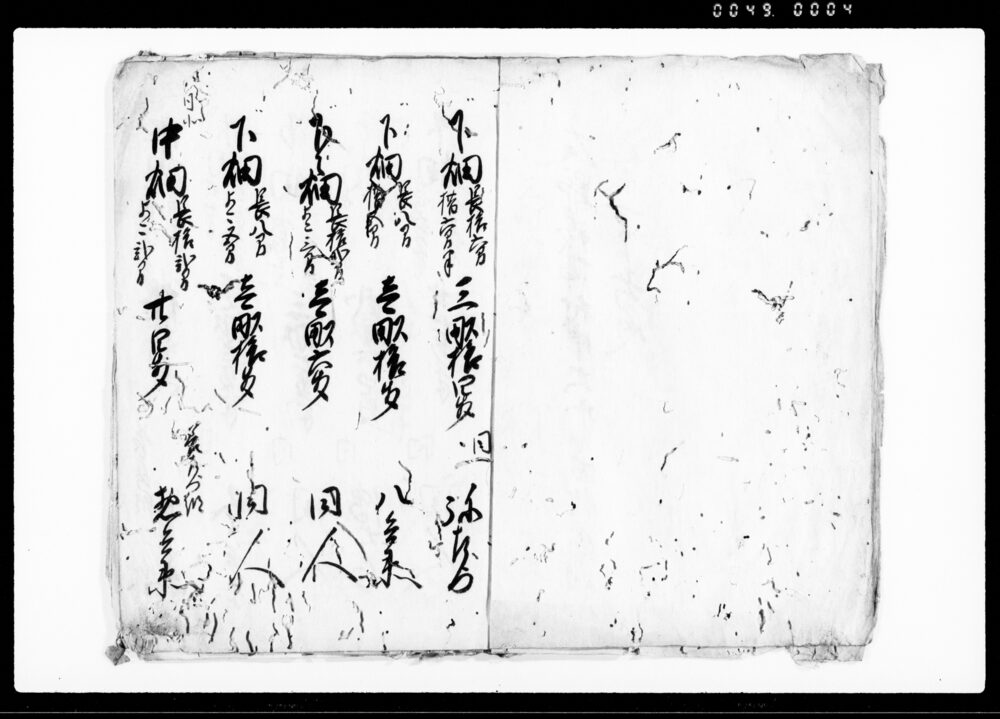 下畑 長拾六間 横六間半 三畝拾四歩 同 弥
下畑 長八間 横五間 壱畝拾歩 八兵衛
下畑 長拾弐間 よこ三間 壱畝六歩 同人
下畑 長八間 よこ五間 壱畝拾歩 同人
中畑 長拾弐間 よこ弐間 廿四歩 惣兵衛
0049. 0004